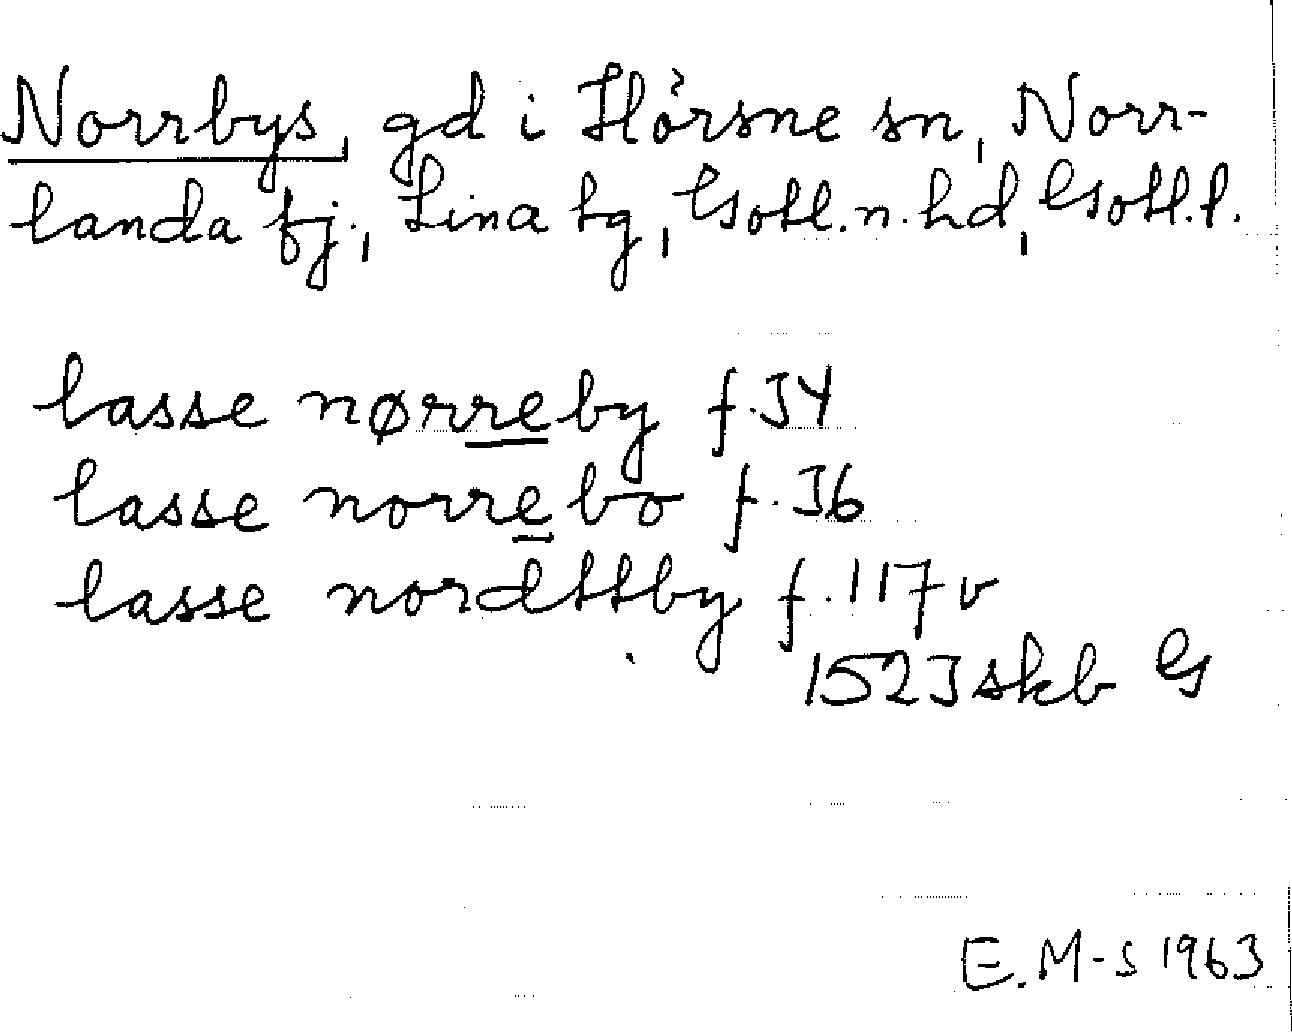 Norrbys, gd i Hörsne sn, Norr-
landa fj., Lina tg, Gotl. n. hd, Gotl. l.
lasse nørreby f. 34
lasse norrebo f. 36
lasse nordttby f. 117 v
1523 skb G
E. M-S 1963